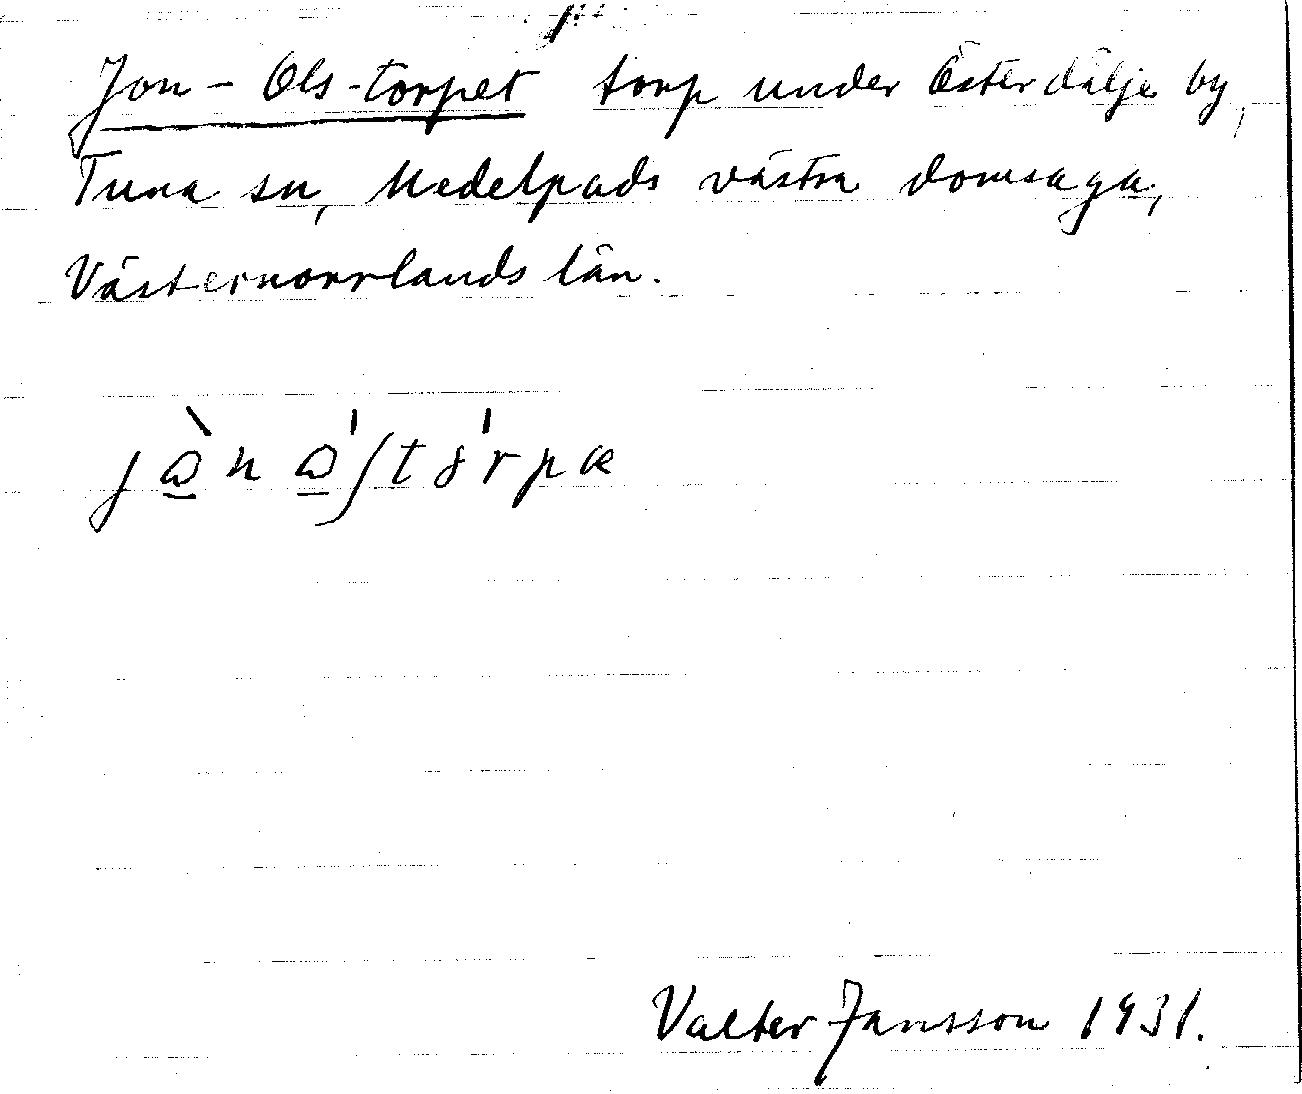 Jon-Ols-torpet torp under Österdälje by,
Tuna sn, Medelpads västra domsaga,
Västernorrlands län.
Valter Jansson 1931.